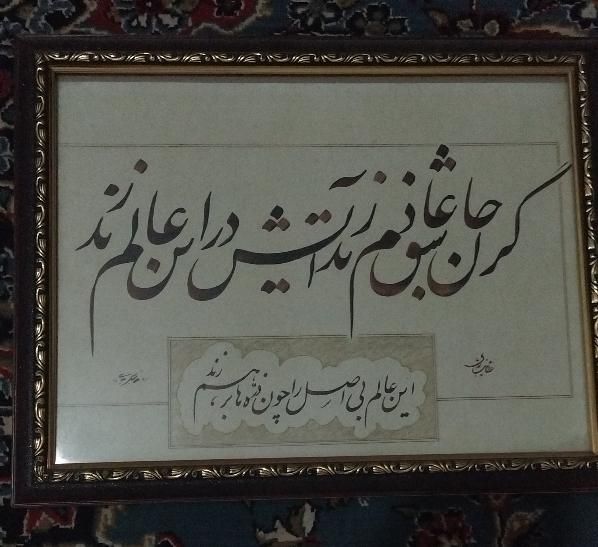 گر جان عاشق دم زند آتش در این عالم زند
این عالم بی اصل را چون ذره ها برهم زند